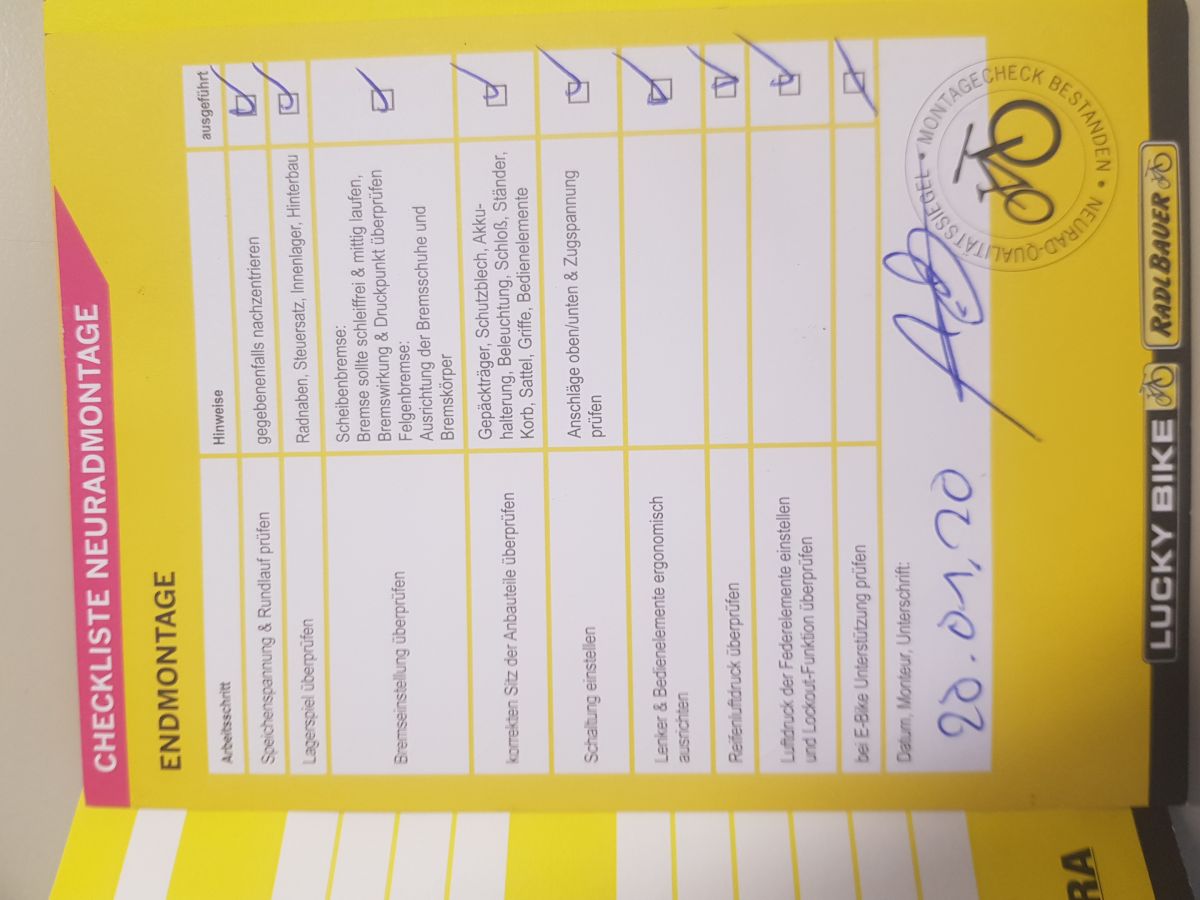 CHECKLISTE NEURADMONTAGE
ENDMONTAGE
Arbeitsschritt Hinweise ausgeführt
Speichenspannung & Rundlauf prüfen gegebenenfalls nachzentrieren
Lagerspiel überprüfen Radnaben, Steuersatz, Innenlager, Hinterbau
Bremseinstellung überprüfen
Scheibenbremse:
Bremse sollte schleiffrei & mittig laufen,
Bremswirkung & Druckpunkt überprüfen
Felgenbremse:
Ausrichtung der Bremsschuhe und
Bremskörper
korrekten Sitz der Anbauteile überprüfen
Gepäckträger, Schutzblech, Akku-
halterung, Beleuchtung, Schloß, Ständer,
Korb, Sattel, Griffe, Bedienelemente
Schaltung einstellen
Anschläge oben/unten & Zugspannung
prüfen
Lenker & Bedienelemente ergonomisch
ausrichten
Reifenluftdruck überprüfen
Luftdruck der Federelemente einstellen
und Lockout-Funktion überprüfen
bei E-Bike Unterstützung prüfen
Datum, Monteur, Unterschrift:
20.01.20
NEURAD-QUALITÄTSSIEGEL • MONTAGECHECK BESTANDEN •
LUCKY BIKE RADLBAUER
RA